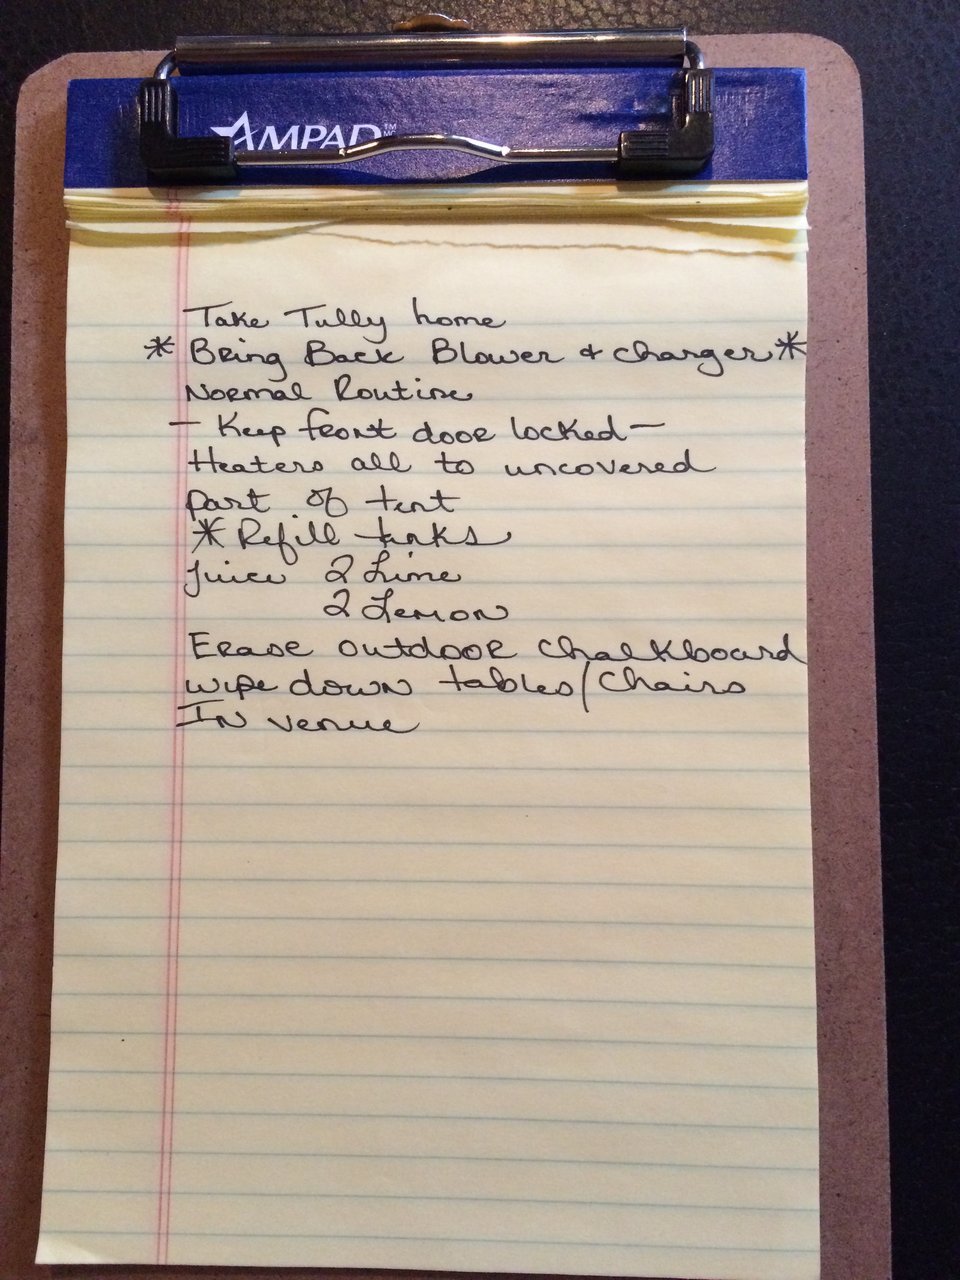 AMPAD™
Take Tully home
* Bring Back Blower & charger *
Normal Routine
- Keep front door locked -
Heaters all to uncovered
part of tent
* Refill tanks
juice 2 Lime
2 Lemon
Erase outdoor chalkboard
wipe down tables/chairs
In venue